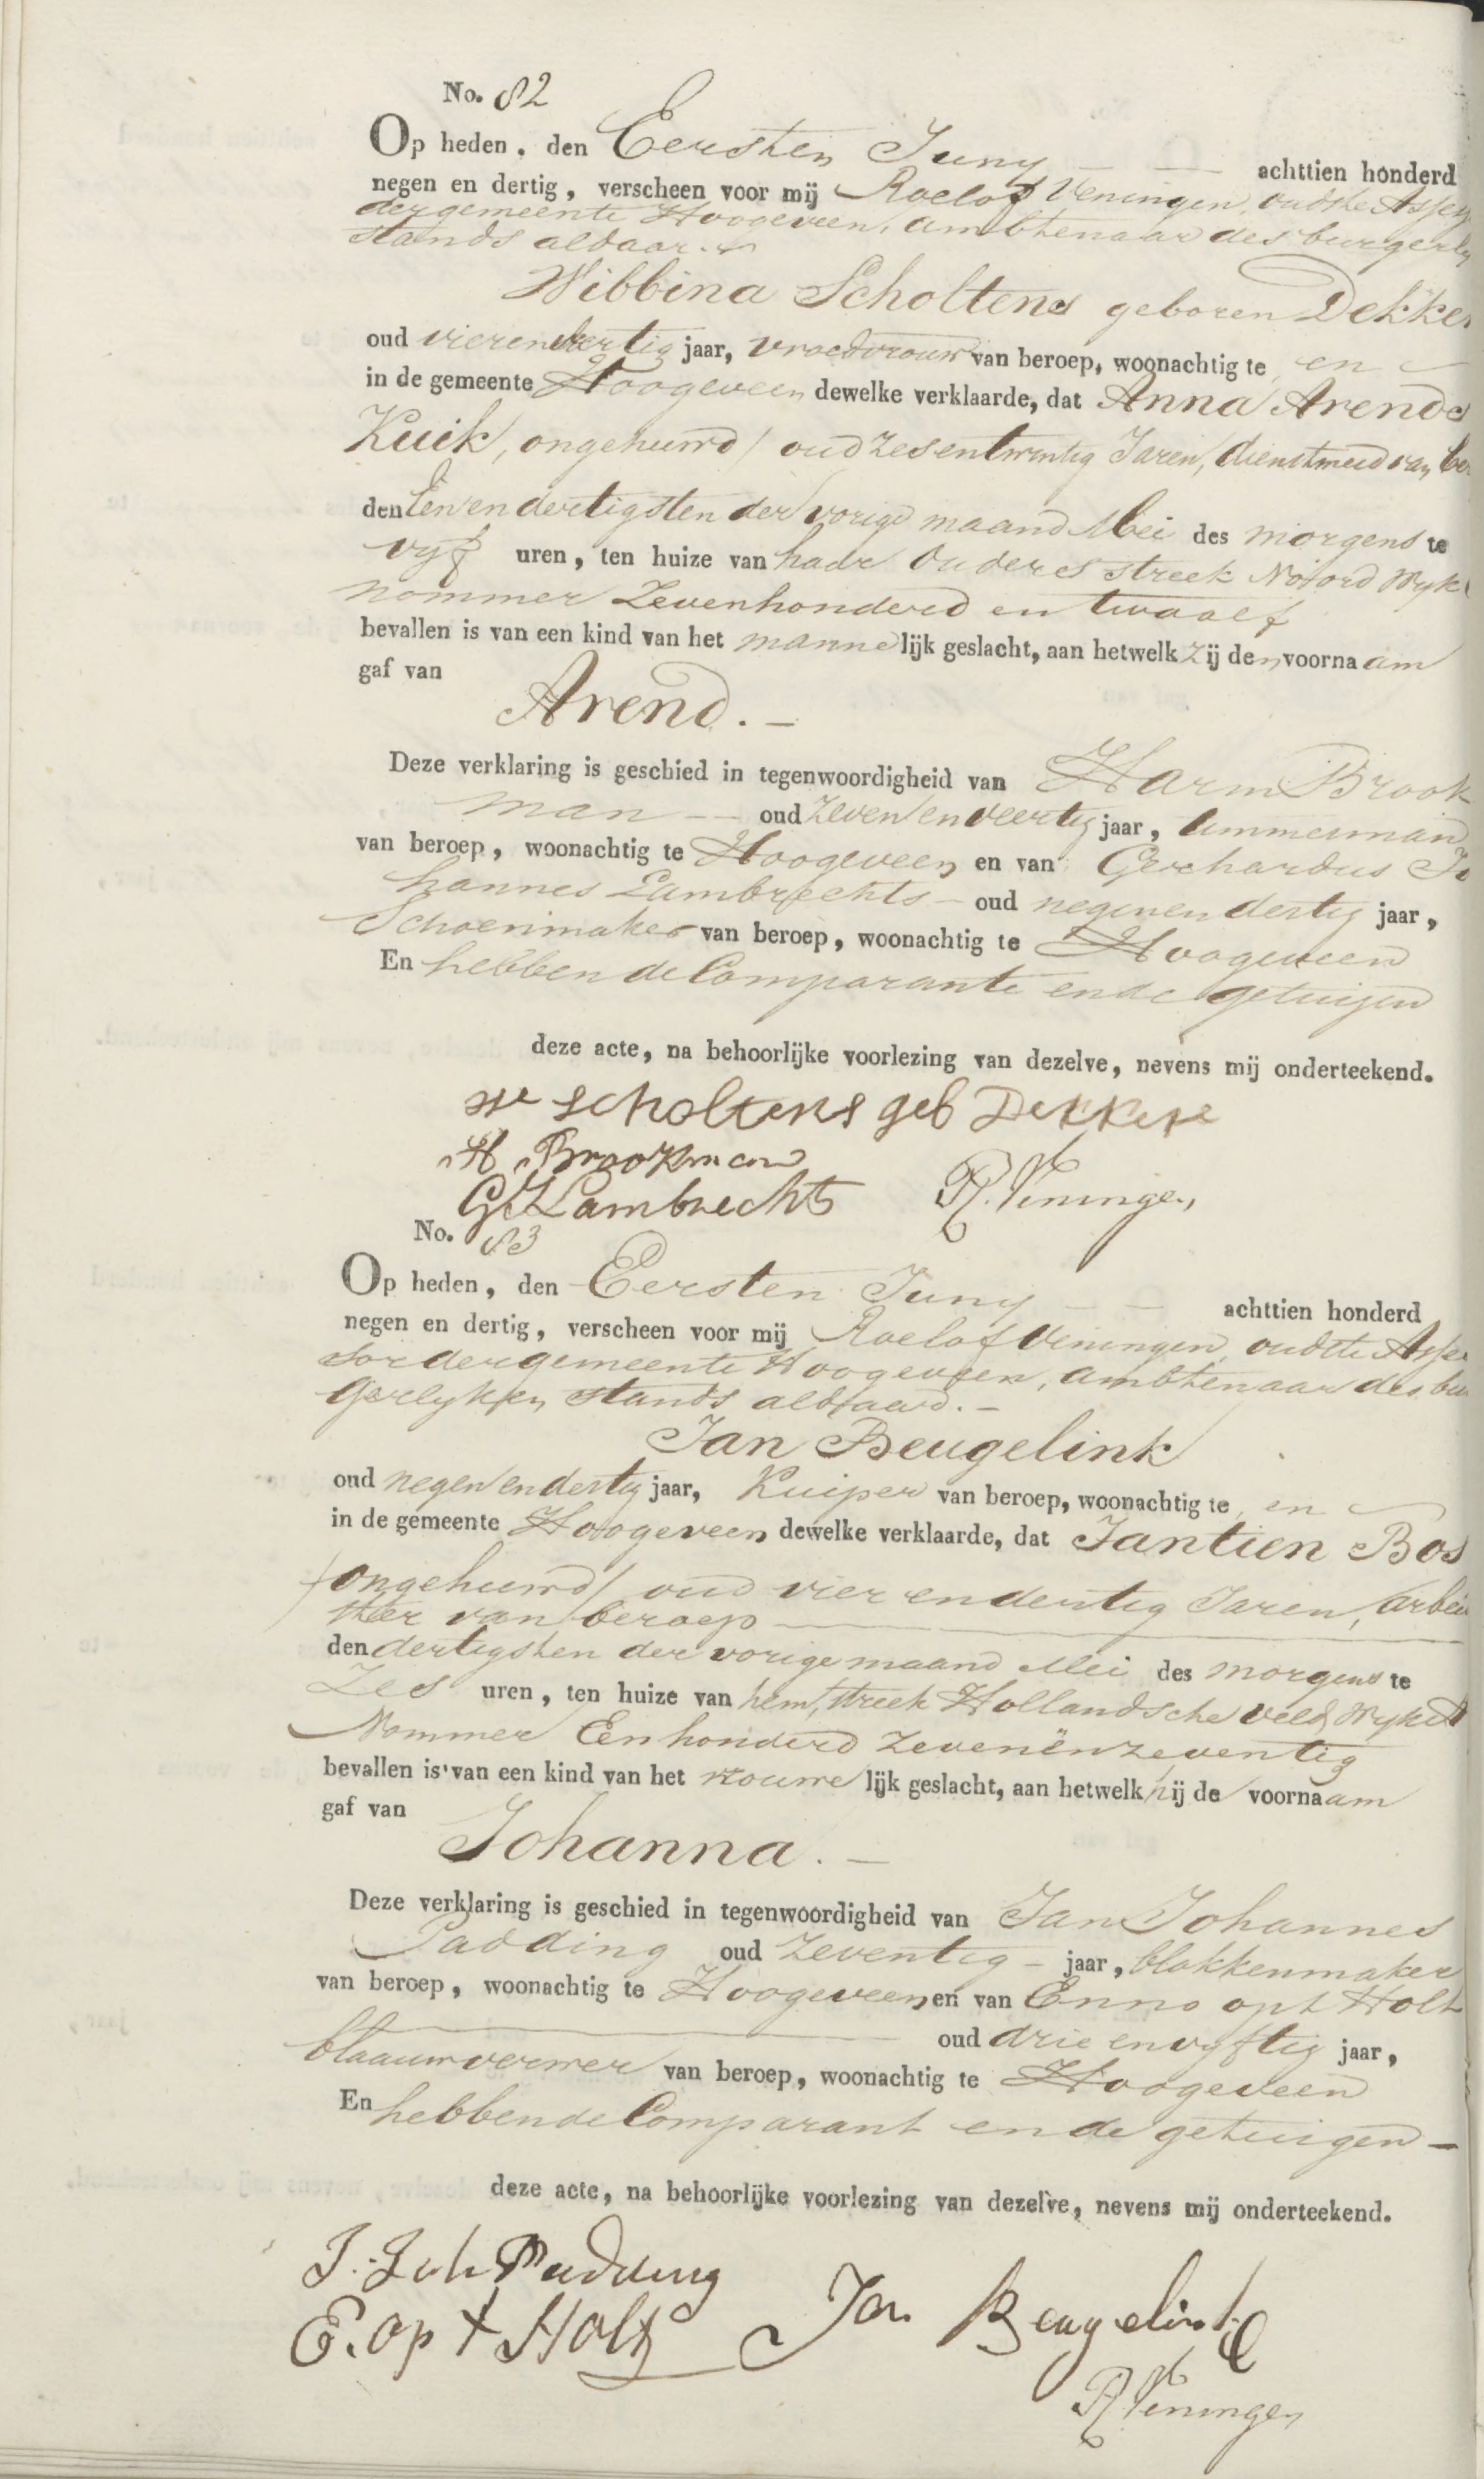 No. 82
Op heden, den Eersten Juny — — achttien honderd
negen en dertig, verscheen voor mij Roelof Veningen, oudste Asses
der gemeente Hoogeveen, ambtenaar des burgerly
stands aldaar.
Wibbina Scholtens geboren Dekker
oud vierenveertig jaar, vroedvrouw van beroep, woonachtig te en
in de gemeente Hoogeveen dewelke verklaarde, dat Anna Arends
Kuik, ongehuwd / oud zesentwintig Jaren, dienstmeid van be
den Eenendertigsten der vorige maand Mei des morgens te
vyf uren, ten huize van haar Ouders streek Noord Wyk
nommer Zevenhonderd en twaalf
bevallen is van een kind van het mannelijk geslacht, aan hetwelk zij den voornaam
gaf van
Arend. —
Deze verklaring is geschied in tegenwoordigheid van Harm Brook
man — oud zeven en veertig jaar, timmerman
van beroep, woonachtig te Hoogeveen en van Gerhardus Jo
hannes Lambrechts — oud negenendertig jaar,
Schoenmaker van beroep, woonachtig te Hoogeveen
En hebben de Comparante en de getuigen
deze acte, na behoorlijke voorlezing van dezelve, nevens mij onderteekend.
W Scholtens geb Dekker
H Brookman
GJ Lambrechts R. Veningen
No. 83
Op heden, den Eersten Juny — — achttien honderd
negen en dertig, verscheen voor mij Roelof Veningen, oudste Asses
sor der gemeente Hoogeveen, ambtenaar des bur
gerlyken stands aldaar. —
Jan Beugelink
oud negen en dertig jaar, Kuiper van beroep, woonachtig te en
in de gemeente Hoogeveen dewelke verklaarde, dat Jantien Bos
/ongehuwd/ oud vier en dertig Jaren, arbei
ster van beroep —
den dertigsten der vorige maand Mei des morgens te
Zes uren, ten huize van hem, streek Hollandsche veld, Wyk
Nommer Eenhonderd zevenënzeventig
bevallen is van een kind van het vrouwelijk geslacht, aan hetwelk hij de voornaam
gaf van
Johanna. —
Deze verklaring is geschied in tegenwoordigheid van Jan Johannes
Padding oud Zeventig — jaar, blokkenmaker
van beroep, woonachtig te Hoogeveen en van Enno opt Holt
— oud drie en vyftig jaar,
blaauwverwer van beroep, woonachtig te Hoogeveen
En hebben de Comparant en de getuigen —
deze acte, na behoorlijke voorlezing van dezelve, nevens mij onderteekend.
J. Joh Padding
E. op t Holt Jan Beugelink
R Veningen